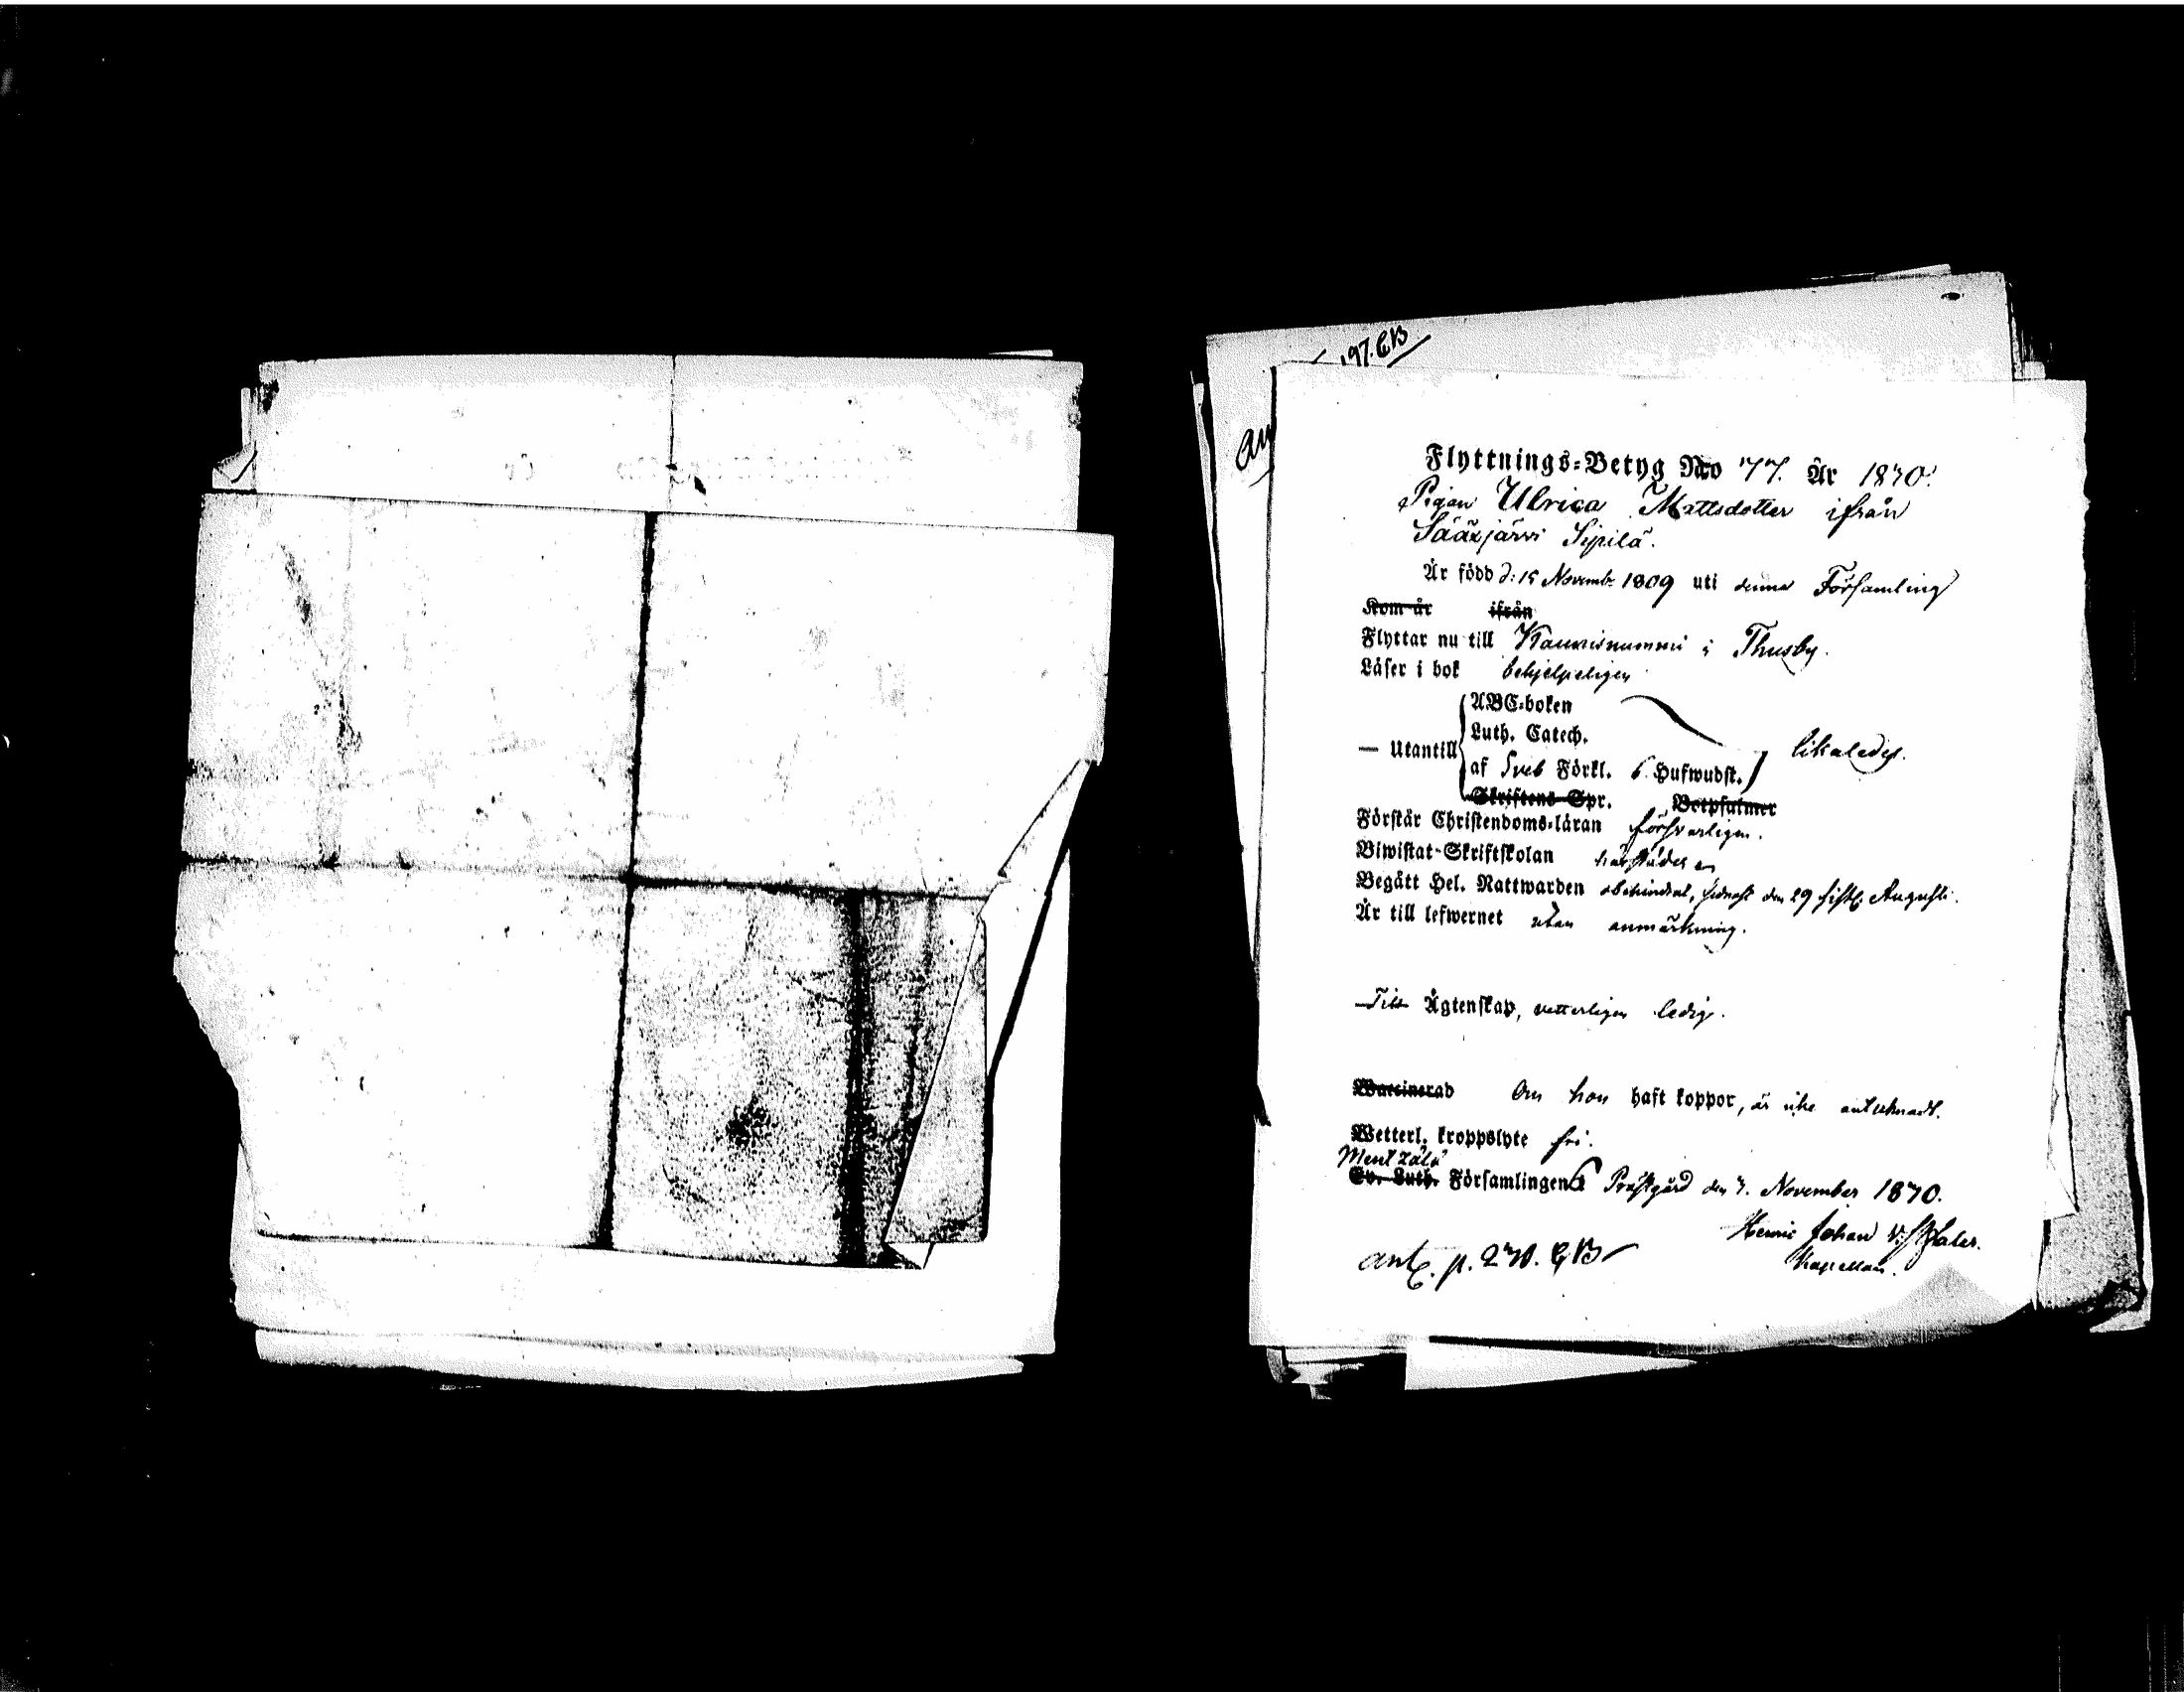 197. CB
Flyttnings-Betyg No 77. År 1870.
Pigan Ulrica Mattsdotter ifrån
Sääxjärvi Sipilä.
Är född d: 15 Novemb. 1809 uti denna Församling
Kom år ifrån
Flyttar nu till Klaukisnummi i Thusby.
Läser i bok behjelpeligen
ABC-boken
Luth. Catech.
— Utantill likaledes.
af Sveb Förkl. 6. Hufwudst.
Skriftens Spr. Botpsalmer
Förstår Christendoms-läran försvarligen.
Biwistat Skriftskolan härstädes
Begått Hel. Nattwarden obehindrat, sednast den 29 sistl. Augusti.
Är till lefwernet utan anmärkning.
Till Ägtenskap, vetterligen ledig.
Waccinerad Om hon haft koppor, är icke antecknadt.
Wetterl. kroppslyte fri.
Mentzälä
Ev. Luth. Församlingens Prästgård den 7. November 1870.
Henric Johan
Kapellan.
ant. p. 270. CB